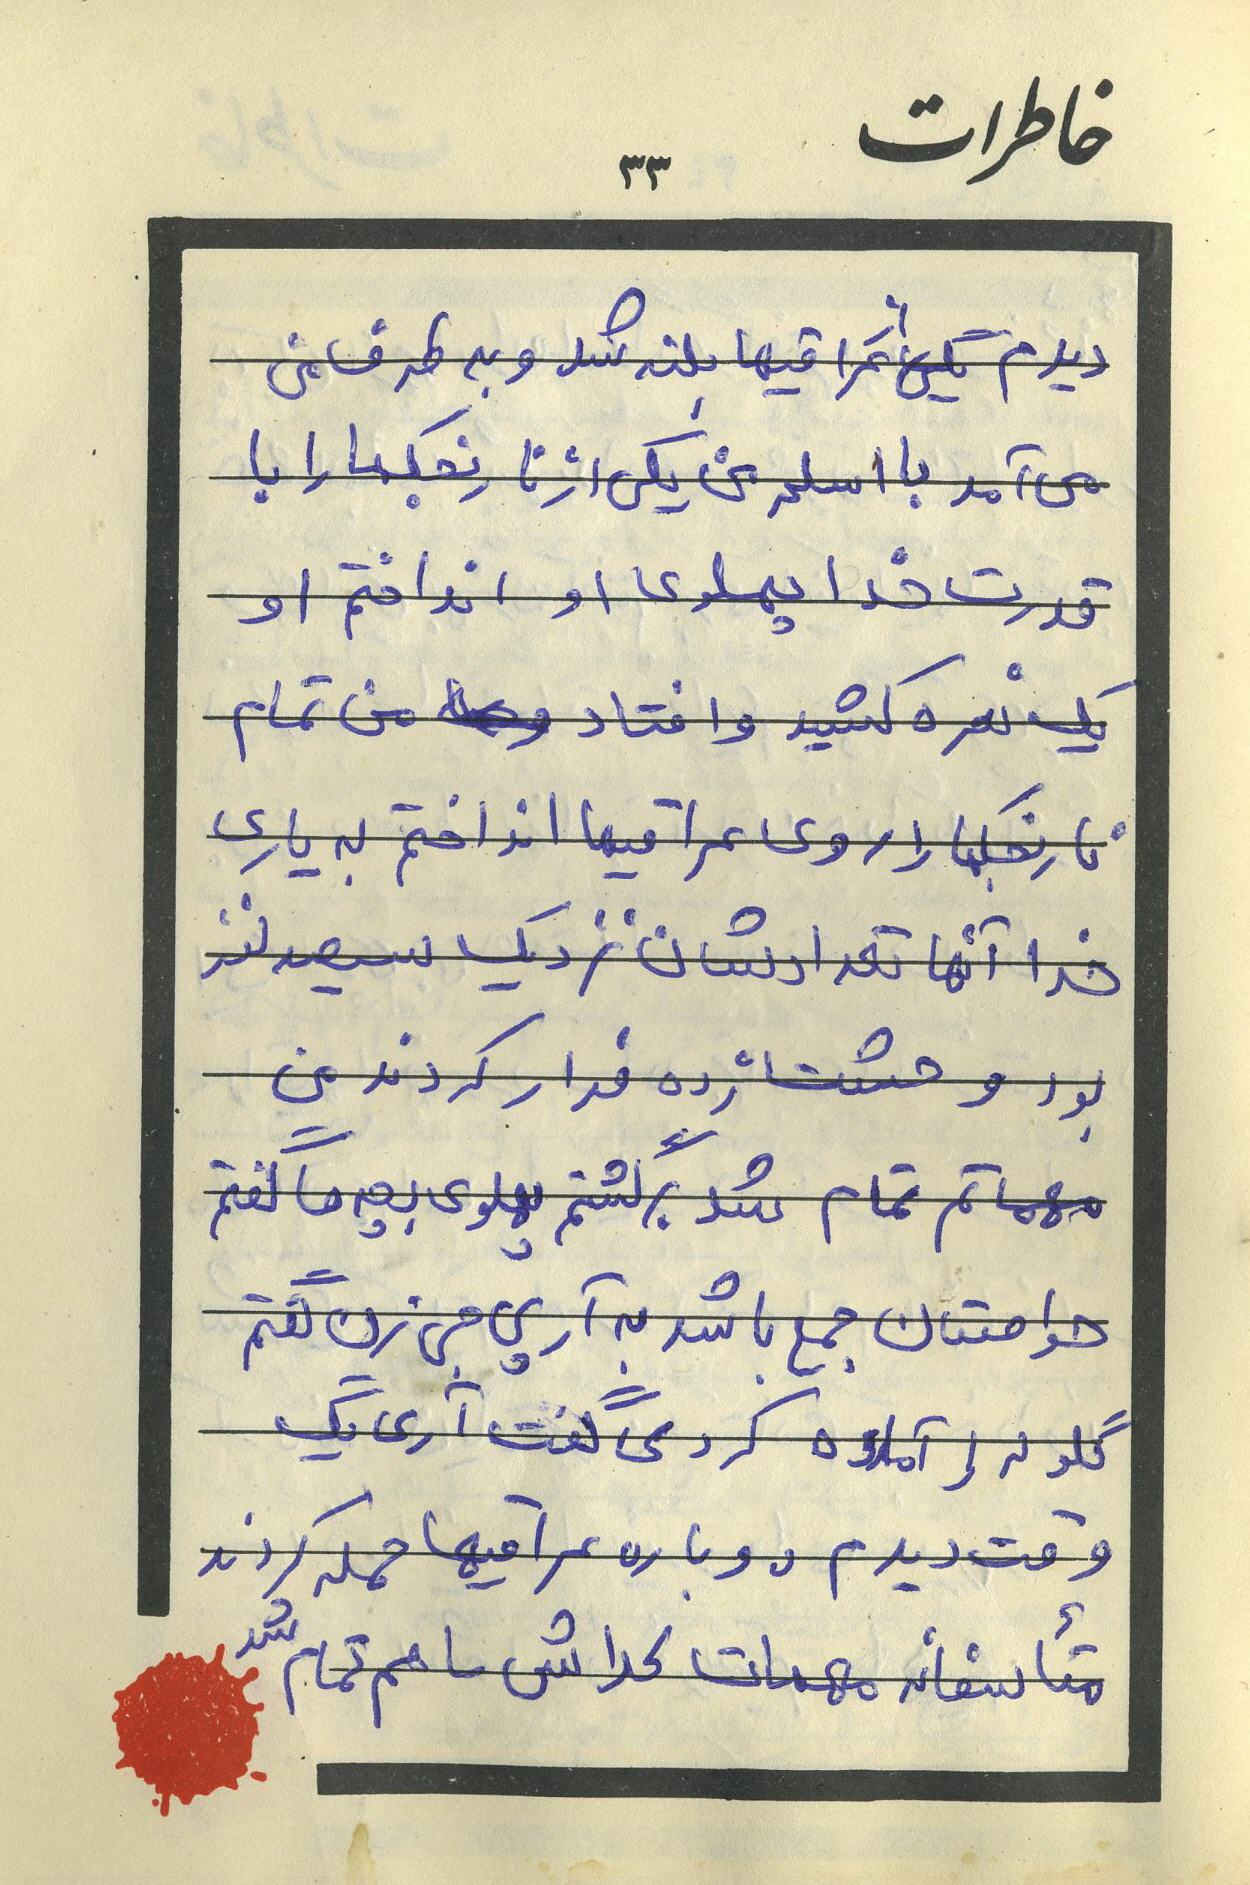 خاطرات
۳۳
دیدم یکی از عراقیها بلند شد و به طرف من
می آمد با اسلحه من یکی از نارنجکها را با
قدرت خدا پهلوی او انداختم او
یک نعره کشید و افتاد من تمام
نارنجکها را روی عراقیها انداختم به یاری
خدا آنها تعدادشان نزدیک سیصد نفر
بود وحشت زده فرار کردند من
مهماتم تمام شد برگشتم پهلوی بچه ها گفتم
حواستان جمع باشد به آرپی جی زن گفتم
گلوله را آماده کردی گفت آری یک
وقت دیدم دوباره عراقیها حمله کردند
متأسفانه مهمات کلاش ما هم تمام شد